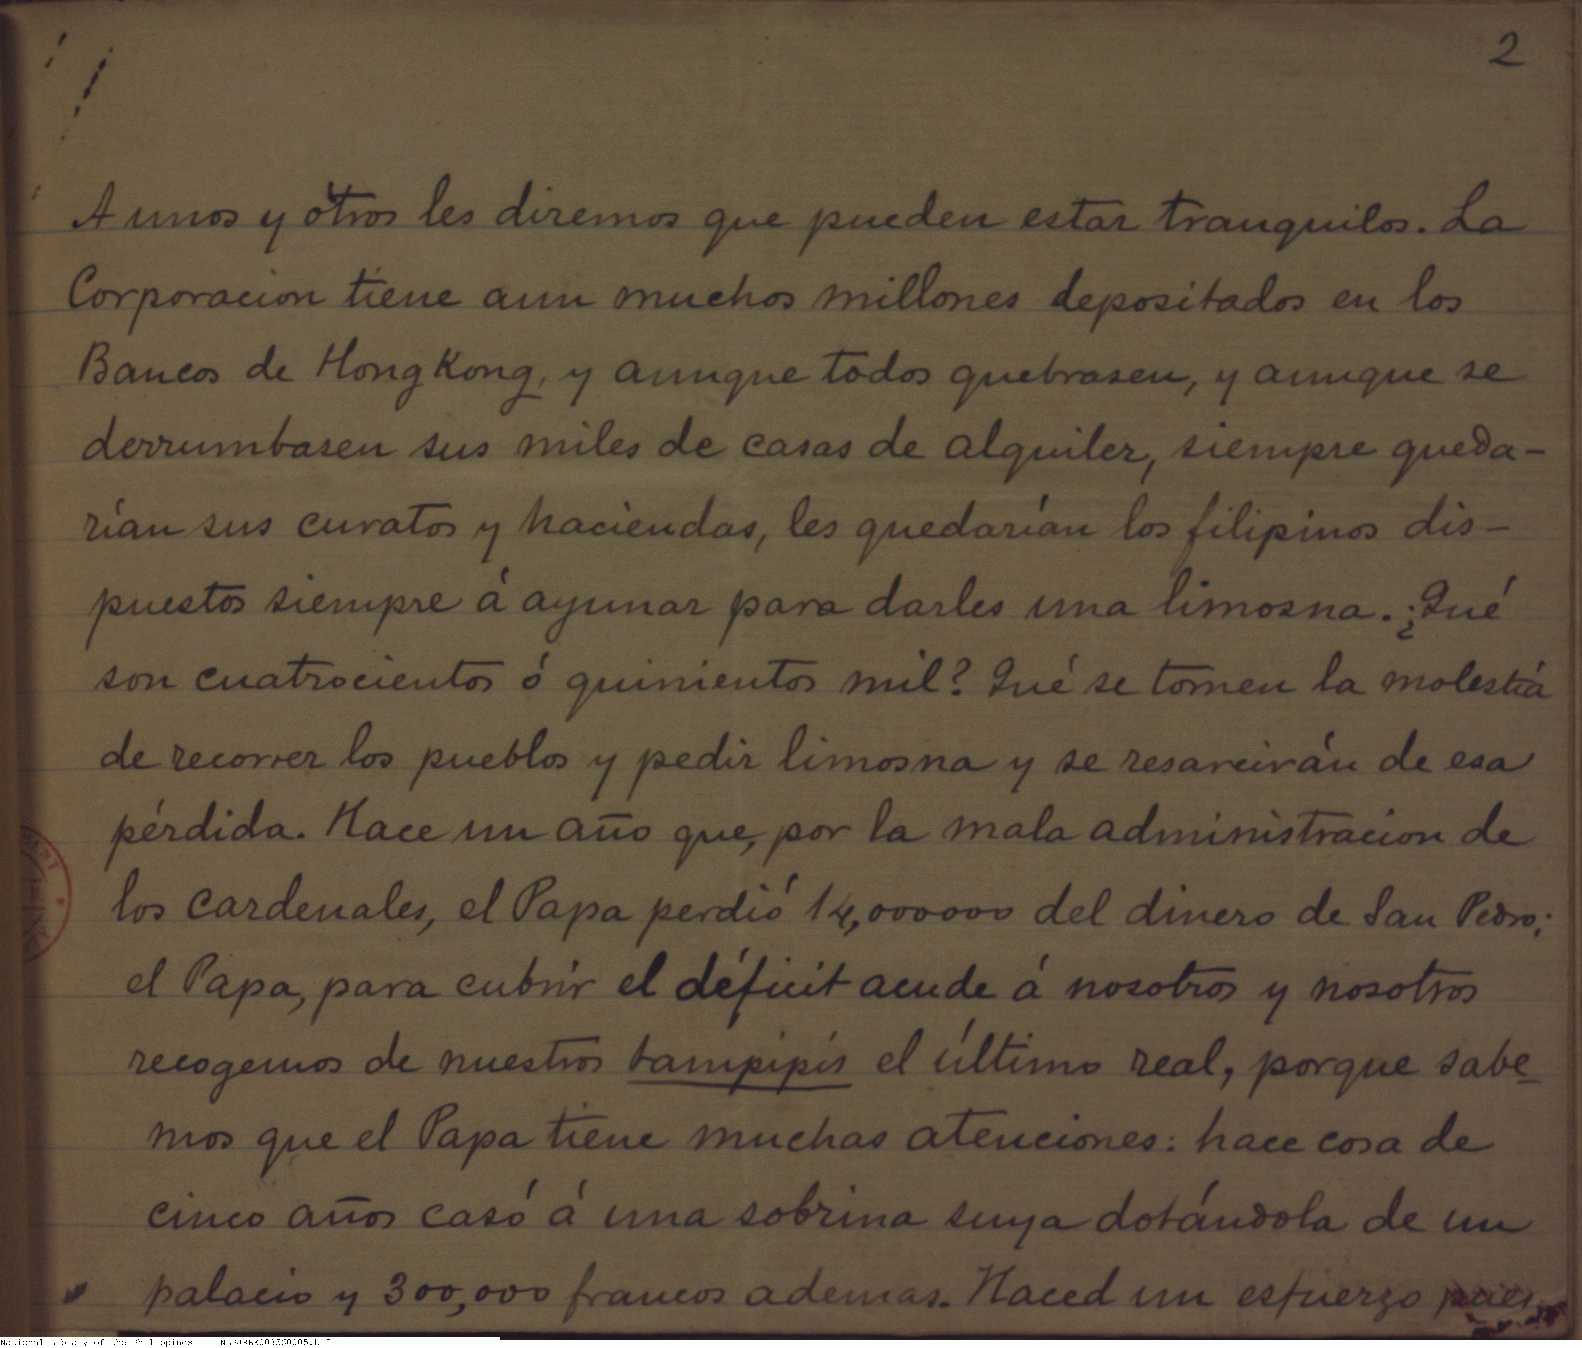 2
A unos y otros les diremos que pueden estar tranquilos. La
Corporacion tiene aun muchos millones depositados en los
Bancos de HongKong, y aunque todos quebrasen, y aunque se
derrumbasen sus miles de casas de alquiler, siempre queda-
rían sus curatos y haciendas, les quedarían los filipinos dis-
puestos siempre á ayunar para darles una limosna. ¿Qué
son cuatrocientos ó quinientos mil? Qué se tomen la molestia
de recorrer los pueblos y pedir limosna y se resarcirán de esa
pérdida. Hace un año que, por la mala administracion de
los cardenales, el Papa perdió 14,000000 del dinero de San Pedro;
el Papa, para cubrir el déficit acude á nosotros y nosotros
recogemos de nuestros tampipis el último real, porque sabe-
mos que el Papa tiene muchas atenciones: hace cosa de
cinco años casó á una sobrina suya dotándola de un
palacio y 300,000 francos ademas. Haced un esfuerzo pues,
National Library of the Philippines